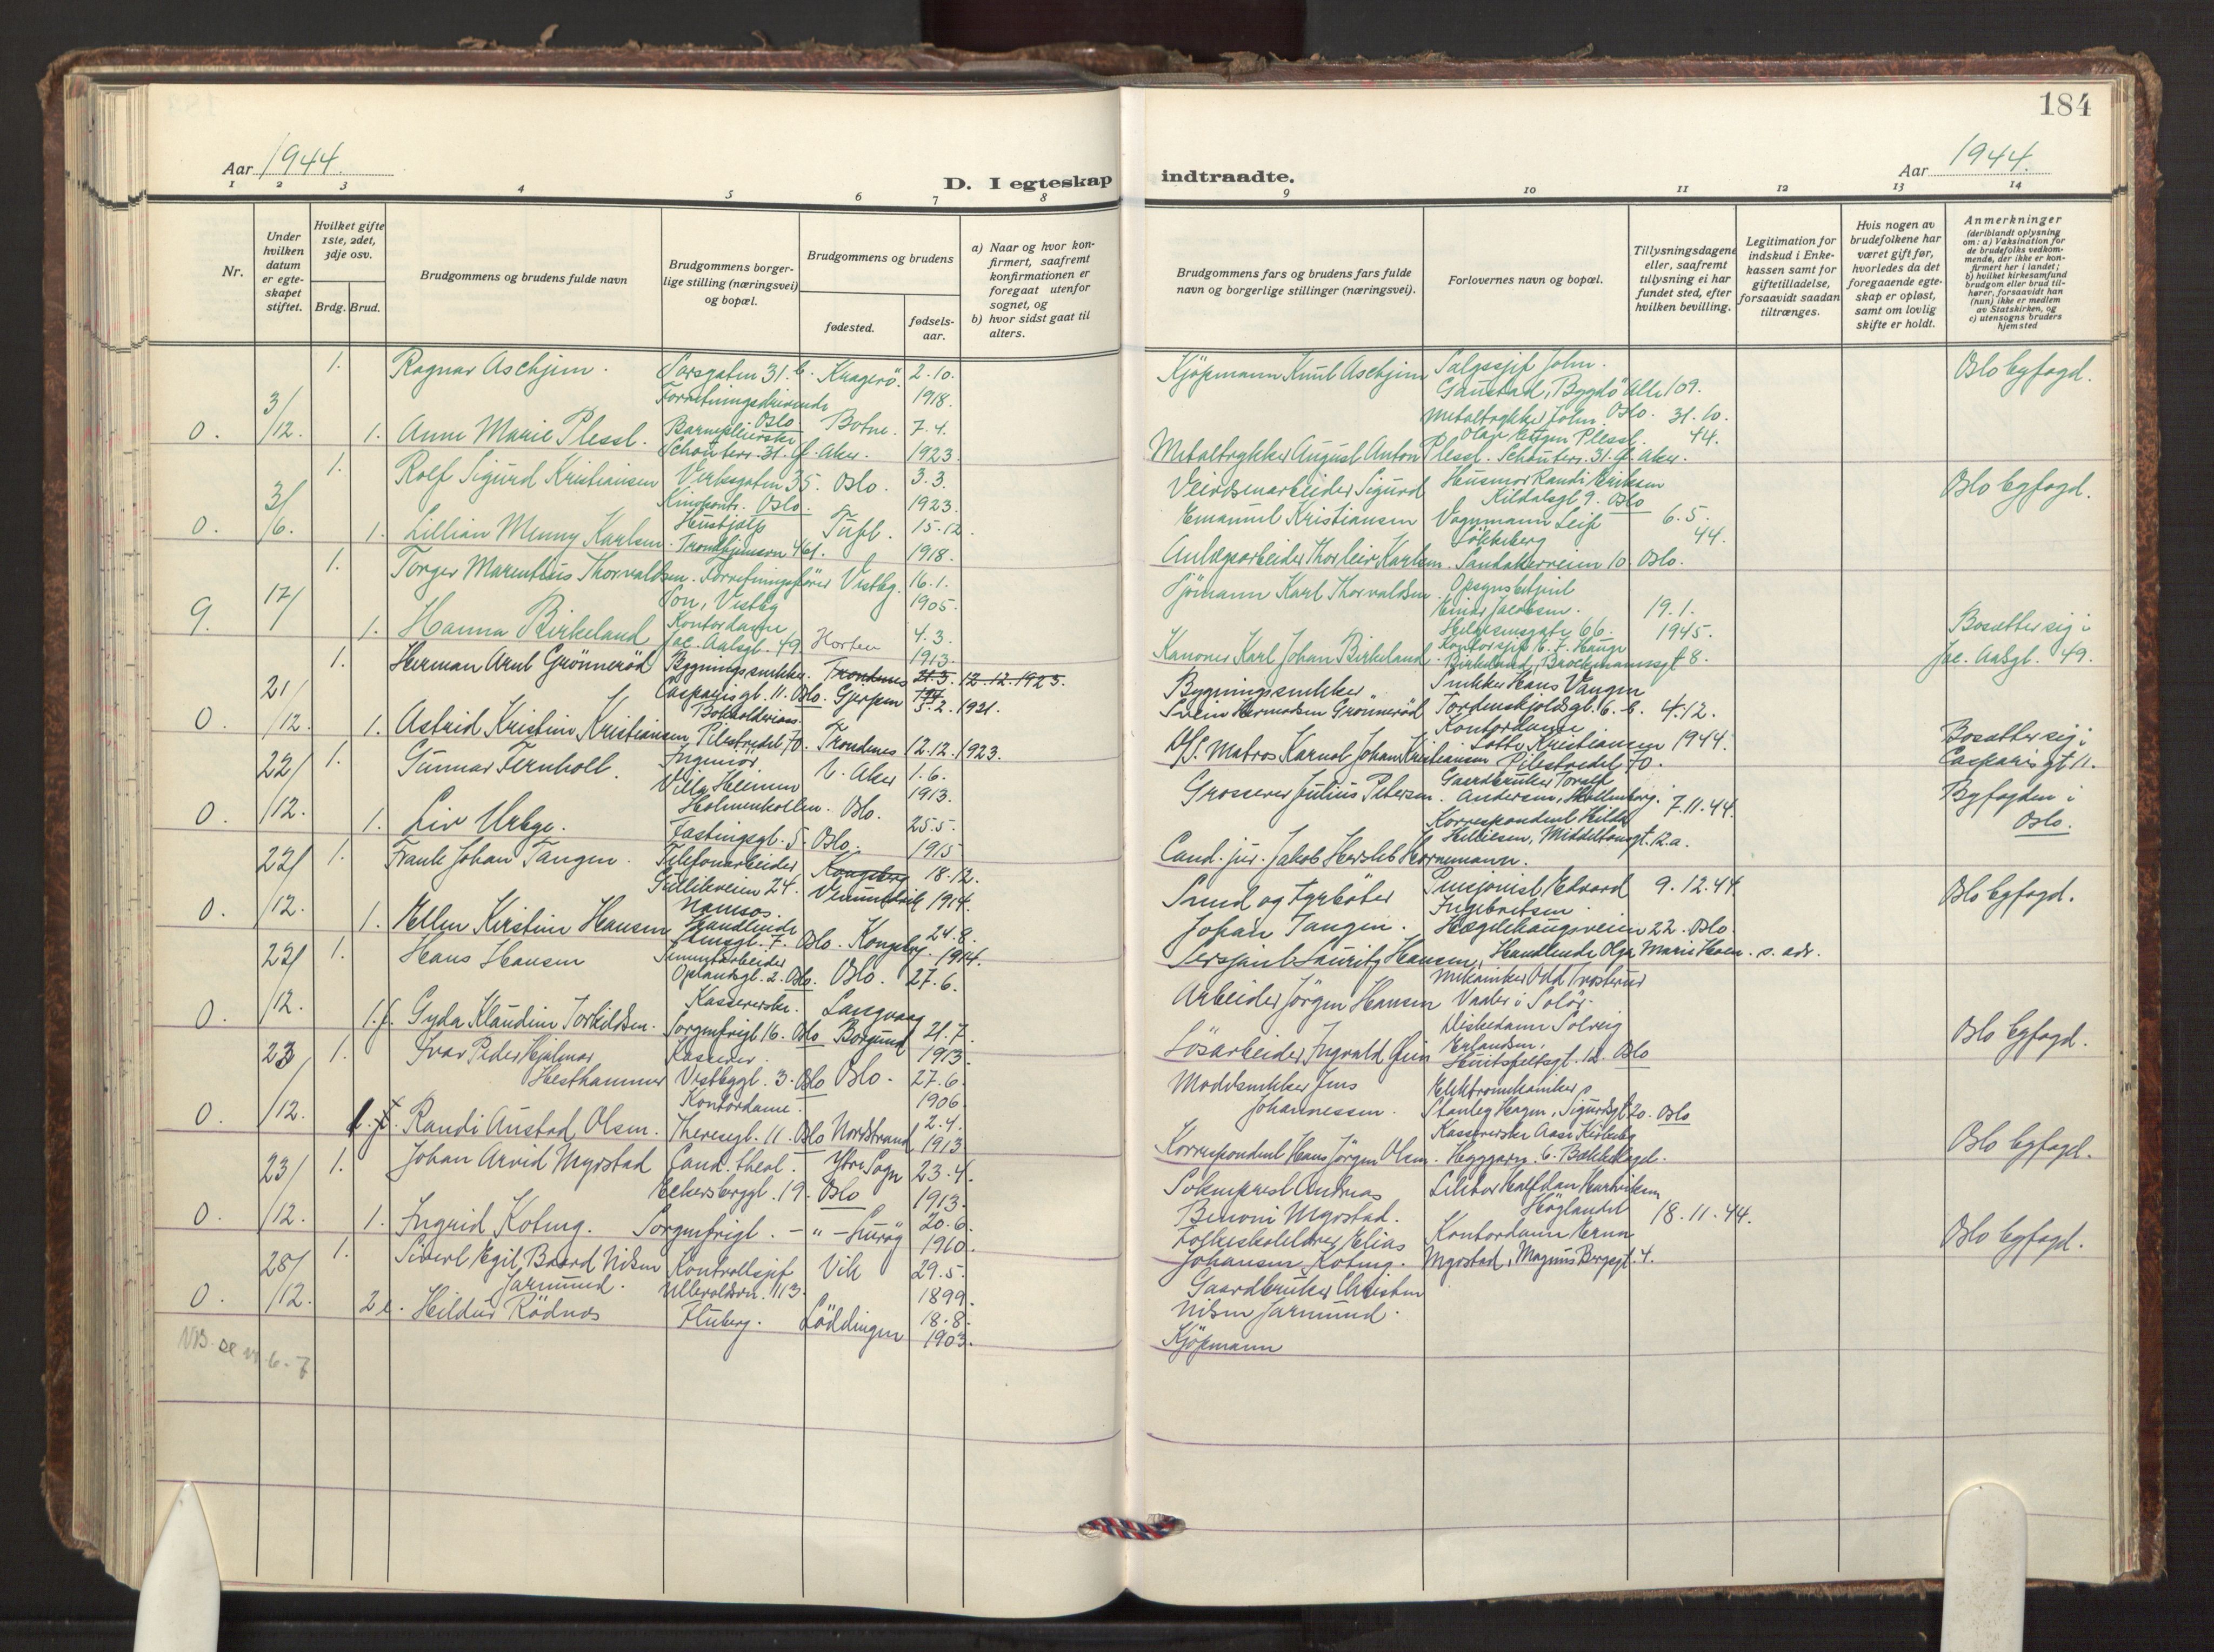 184
Aar 1944.
D. I egteskap indtraadte.
Aar 1944.
1 2 3 4 5 6 7 8 9 10 11 12 13 14
Nr.
Under hvilken datum er egteskapet stiftet.
Hvilket gifte 1ste, 2det, 3dje osv.
Brdg. Brud.
Brudgommens og brudens fulde navn
Brudgommens borgerlige stilling (næringsvei) og bopæl.
Brudgommens og brudens
fødested.
fødselsaar.
a) Naar og hvor konfirmert, saafremt konfirmationen er foregaat utenfor sognet, og
b) hvor sidst gaat til alters.
Brudgommens fars og brudens fars fulde navn og borgerlige stillinger (næringsvei).
Forlovernes navn og bopæl.
Tillysningsdagene eller, saafremt tillysning ei har fundet sted, efter hvilken bevilling.
Legitimation for indskud i Enkekassen samt for giftetilladelse, forsaavidt saadan tiltrænges.
Hvis nogen av brudefolkene har været gift før, hvorledes da det foregaaende egteskap er opløst, samt om lovlig skifte er holdt.
Anmerkninger (deriblandt oplysning om: a) Vaksination for de brudefolks vedkommende, der ikke er konfirmert her i landet; b) hvilket kirkesamfund brudgom eller brud tilhører, forsaavidt han (hun) ikke er medlem av Statskirken, og c) utensogns bruders hjemsted
1. Ragnar Aschjem. Sorsgaten 31.b. Kragerö. 2.10.
Forretningsdrivende Oslo 1918.
Kjöpmann Knut Aschjem Salgssjef John Gaustad, Bygdö Alle 109. Oslo.
Oslo byfogd.
0. 3/12. 1. Anne Marie Plessl. Barnepleierske Botne. 7.4.
Schouterr. 31. Gl. Aker. 1923.
Metaltrykker August Anton Plessl. Schouterr. 31. Gl. Aker.
Metaltrykker John Olav Plessl. 31.10. 44.
1. Rolf Sigurd Kristiansen Verksgaten 35. Oslo. 3.3.
Oslo. 1923.
Veivesenarbeider Sigurd Emanuel Kristiansen
Husmor Randi Eriksen Kildalsgt 9. Oslo
Oslo byfogd.
0. 3/6. 1. Lillian Menny Karlsen. Hushjælp 15.12.
Trondhjemsvn 1918.
Anlægsarbeider Thorleiv Karlsen.
Vognmann Leif Lökkeberg Sandakerveien 10. Oslo. 6.5. 44.
1. Torger Marentius Thorvaldsen. Forretningsfører Vestby. 16.1.
Son, Vestby 1905.
Sjömann Karl Thorvaldsen. Opsynsbetjent Einar Jacobsen.
9. 17/ 1. Hanna Birkeland Kontordame Horten 4.3.
Jac. Aalsgt. 49 1913.
Kanoner Karl Johan Birkeland. Kontorsjef Birkeland, Brochmannsgt 8.
19.1. 1945.
Bosætter sig i Jac. Aalsgt. 49.
1. Herman Arnt Grönneröd Bygningssnekker. Trondenes 21.3. 12.12.1923.
Casparisgt. 11. Oslo. Gjerpen 3.2.1921.
Bygningssnekker Svein Hermodsen Grönneröd
Snekker Hans Vangen Tordenskjoldsgt. 6.b. 4.12. 1944.
0. 21/12. 1. Astrid Kristine Kristiansen Bokholderiass. Pilestredet 70. Trondenes 12.12.1923.
Matros Karnot Johan Kristiansen
Kontordame Lotte Kristiansen Pilestredet 70.
Bosætter sig i Casparisgt 11.
22/ 1. Gunnar Fernholt. Ingeniör V. Aker 1.6.
Villa Heimen Holmenkollen. 1913.
Grosserer Julius Petersen. Gaardbruker Toralf Andersen, 7.11.44.
Byfogden i Oslo.
0. /12. 1. Liv Urbye. Fastingsgt. 5. Oslo. 25.5.
1915
Cand. jur. Jakob Hersleb Hornemann.
Korrespondent Hilda Middelthonsgt. 12.a.
22/ 1. Frank Johan Tangen. Telefonarbeider Kongsberg 18.12.
24. 1914.
Smed og fyrbøter Johan Tangen. Pensjonist Edvard Ingebretsen Hægdehaugsveien 22. Oslo. 9.12.44.
Oslo byfogd.
0. /12. 1. Ellen Kirstine Hansen Namsos. Handlende Oslo. Kongsberg. 24.8. 1914.
Sersjant Lauritz Hansen, Handlende Olga Marie Hoen. s. adr.
22/ 1. Hans Hansen Sementarbeider Oplandsgt. 2. Oslo. Oslo. 27.6.
Arbeider Jörgen Hansen Mekaniker Odd Vaaler i Solör.
0. /12. 1.f. Gyda Klaudine Torkildsen. Kassererske. Langvaag 21.7.
Sorgenfrigt 16. Oslo Borgund 1913.
Lösarbeider Ingvald Solveig Erlandsen, Huitfeltsgt. 12. Oslo
Oslo byfogd.
23/ 1. Ivar Peder Hjalmar Hesthammer Kasserer. Vestbygt. 3. Oslo Oslo. 27.6.
1906.
Modelsnekker Jens Johannessen. Elektromekaniker Stanley Hagen, Sigurdsgt 20. Oslo
0. /12. Randi Austad Olsen. Kontordame. Theresegt. 11. Oslo Nordstrand 2.4. 1913
Korrespondent Hans Jörgen Olsen. Kassererske Aase Kirkeby Heggevn. 6. Bækkelaget.
Oslo byfogd.
23/ 1. Johan Arvid Myrstad Cand. theol. Ytre Sogn 23.4.
Eckersberggt. 19. Oslo 1913.
Sokneprest Andreas Benoni Myrstad. Lektor Halfdan Hartviksen Höglandet 18.11.44.
0. /12. 1. Ingrid Koteng. Sorgenfrigt. - " - 20.6.
1910.
Folkeskolelærer Elias Johansen Koteng. Kontordame Erna Myrstad, Magnus Bergsgt. 4.
Oslo byfogd.
28/ 1. Sivert Egil Baard Nilsen Jarmund. Kontrollsjef Vik 29.5.
Ullevoldsvn. 113. 1899.
Gaardbruker Christen Nilsen Jarmund.
0. /12. 2 e. Hildur Rödnes Fluberg. Löddingen 18.8.
1903.
Kjöpmann
NB. se nr. 6-7